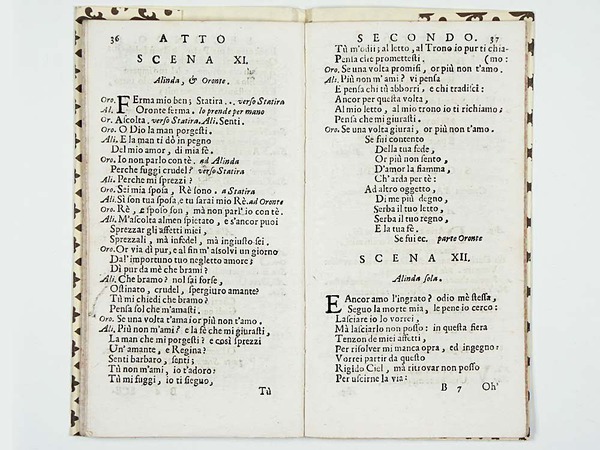 36 ATTO
SCENA XI.
Alinda, & Oronte.
Oro. FErma mio ben; Statira... verso Statira
Al. Oronte ferma. lo prende per mano
Or. Ascolta. verso Statira. Ali. Senti.
Oro. O Dio la man porgesti.
Ali. E la man ti dò in pegno
Del mio amor, di mia fè.
Oro. Io non parlo con tè. ad Alinda
Perche fuggi crudel? verso Statira
Ali. Perche mi sprezzi?
Oro. Sei mia sposa, Rè sono. a Statira
Ali. Sì son tua sposa, e tu sarai mio Rè. ad Oronte
Oro. Rè, e sposo son, mà non parl'io con tè.
Ali. M'ascolta almen spietato, e s'ancor puoi
Sprezzar gli affetti miei,
Sprezzali, mà infedel, mà ingiusto sei.
Oro. Or via dì pur, e al fin m'assolvi un giorno
Dal'importuno tuo negletto amore;
Dì pur da mè che brami?
Ali. Che bramo? nol sai forse,
Ostinato, crudel, spergiuro amante?
Tù mi chiedi che bramo?
Pensa sol che m'amasti.
Oro. Se una volta t'amai or più non t'amo.
Ali. Più non m'ami? e la fè che mi giurasti,
La man che mi porgesti? e così sprezzi
Un'amante, e Regina?
Senti barbaro, senti;
Tù non m'ami, io t'adoro:
Tù mi fuggi, io ti sieguo,
Tù
SECONDO. 37
Tù m'odii; al letto, al Trono io pur ti chia-
Pensa che promettesti. (mo:
Oro. Se una volta promisi, or più non t'amo.
Ali. Più non m'ami? vi pensa
E pensa chi tù abborri, e chi tradisci:
Ancor per questa volta,
Al mio letto, al mio trono io ti richiamo;
Pensa che mi giurasti.
Oro. Se una volta giurai, or più non t'amo.
Se fui contento
Della tua fede,
Or più non sento,
D'amor la fiamma,
Ch'arda per tè:
Ad altro oggetto,
Di me più degno,
Serba il tuo letto,
Serba il tuo regno,
E la tua fè.
Se fui ec. parte Oronte
SCENA XII.
Alinda sola.
E Ancor amo l'ingrato? odio mè stessa,
Seguo la morte mia, le pene io cerco:
Lasciare io lo vorrei,
Mà lasciarlo non posso: in questa fiera
Tenzon de miei affetti,
Per risolver mi manca opra, ed ingegno:
Vorrei partir da questo
Rigido Ciel, mà ritrovar non posso
Per uscirne la via:
B 7 Oh'